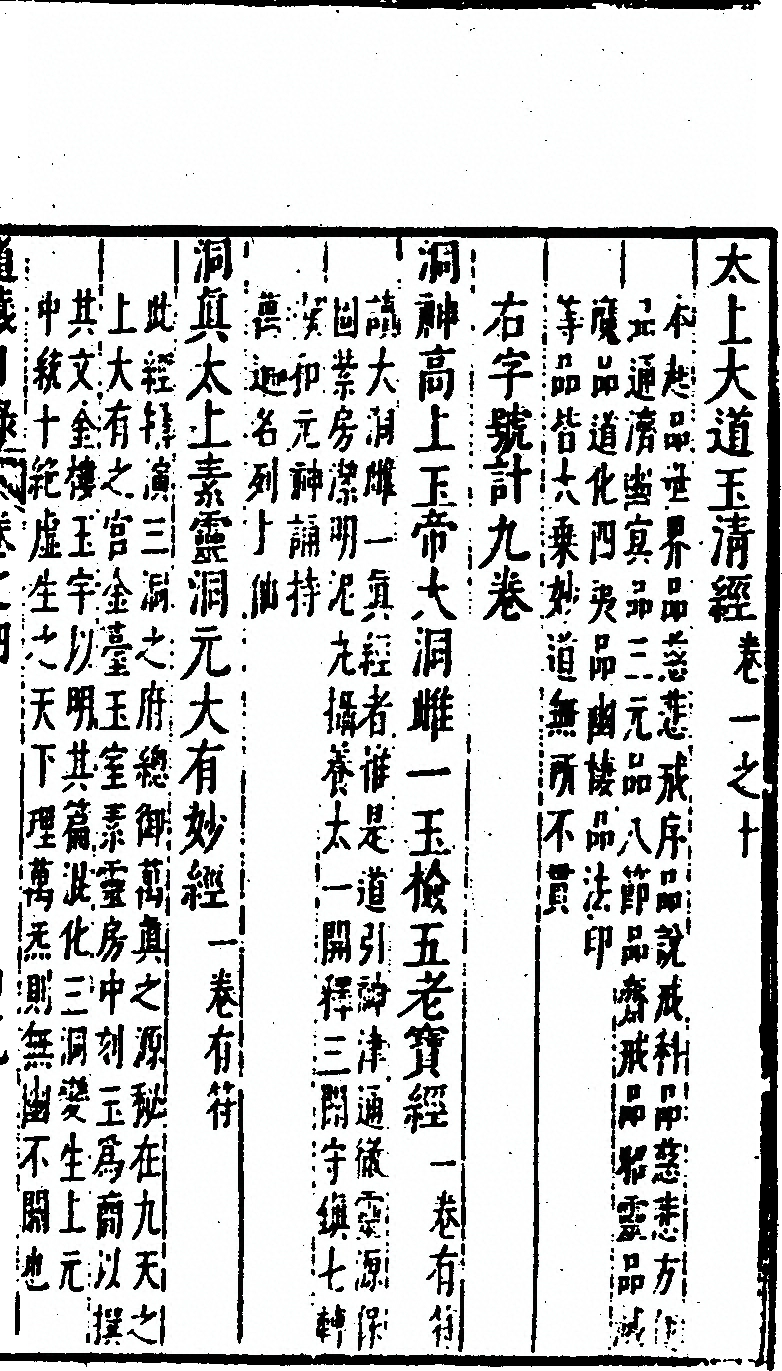 太上大道玉清經卷一之十
本起品世界品慈悲戒序品說戒科品慈悲方
品通濟幽冥品三元品八節品齋戒品昭靈品滅
魔品道化四夷品幽棲品法印
等品皆大乘妙道無所不貫
右字號計九卷
洞神高上玉帝大洞雌一玉檢五老寶經一卷有符
讀大洞雌一眞經者惟是道引神津通徹靈源保
固葉房潔明泥丸攝養太一開釋三關守鎮七轉
卯元神誦持
萬遍名列上仙
洞眞太上素靈洞元大有妙經一卷有符
此經轉演三洞之府總御萬眞之源秘在九天之
上大有之宮金臺玉室素靈房中刻玉爲簡以撰
其文金樓玉字以明其篇混化三洞變生上元
中統十絕虛生之天下理萬炁則無幽不關也
道藏目錄卷之四